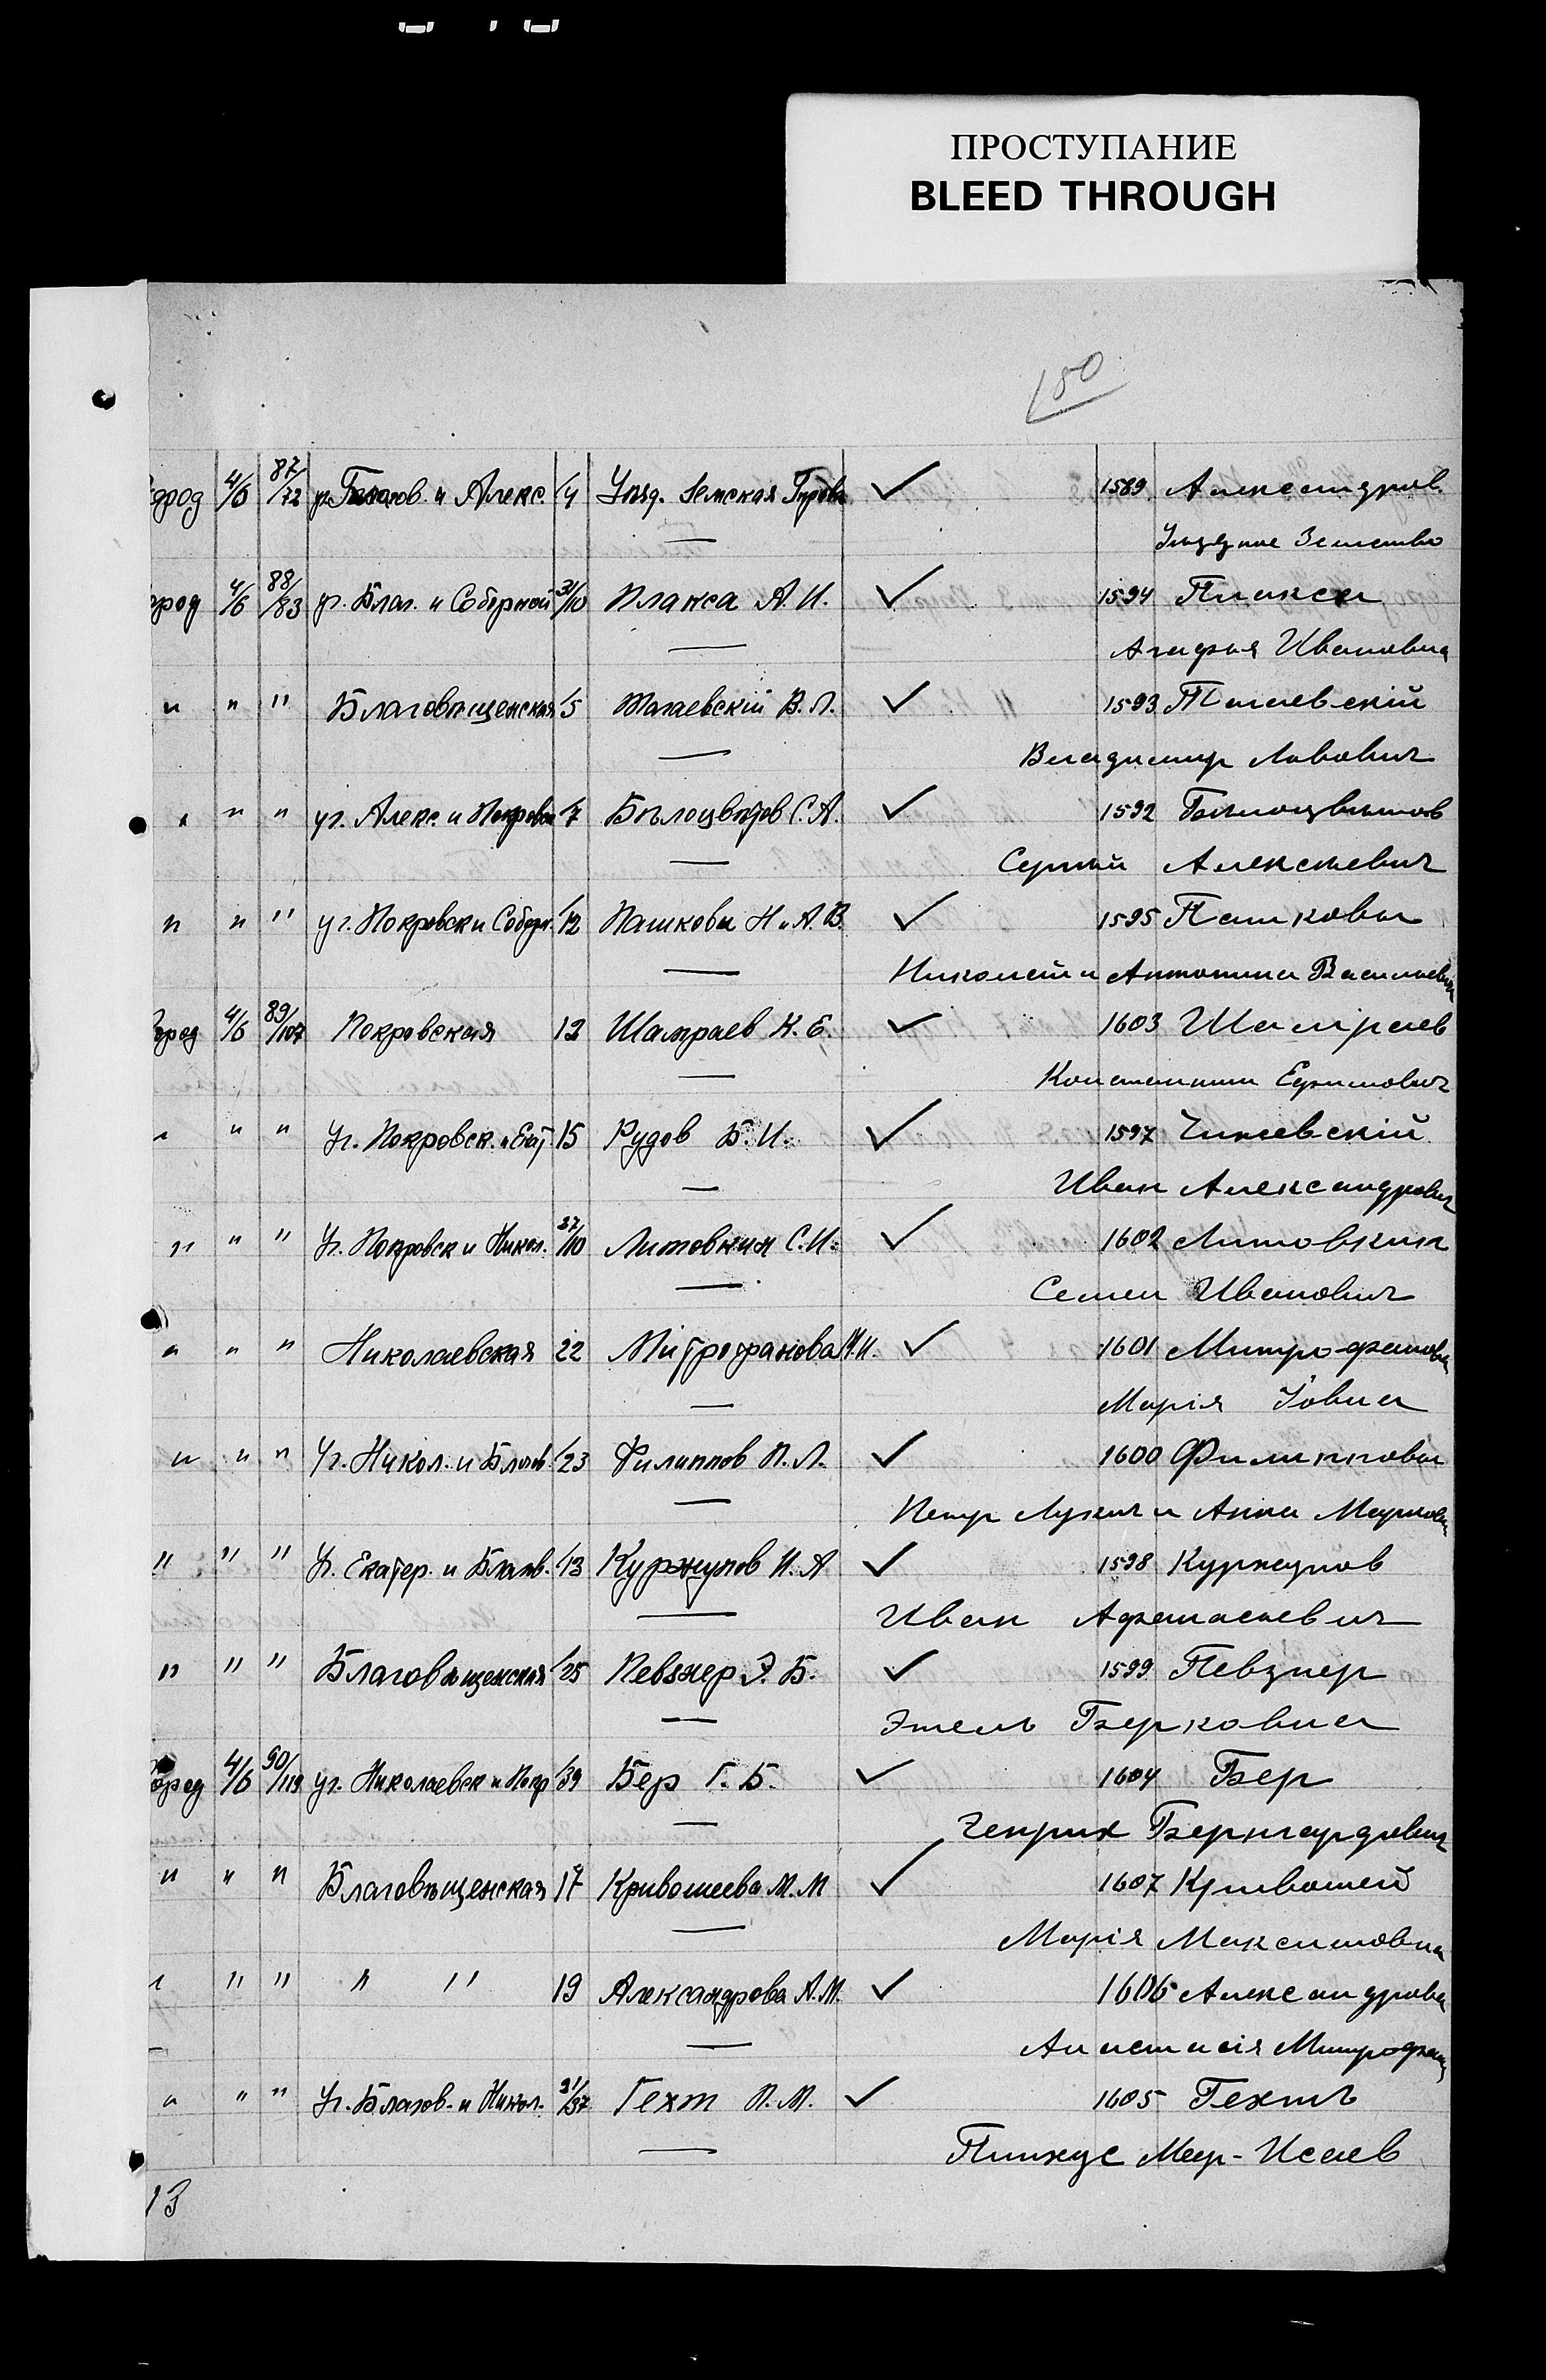 ПРОСТУПАНИЕ
BLEED THROUGH
150
город 4/6 87/72 уг. Благов. и Алекс. /4 Уѣзд. Земская Управа ✓ 1589 Александров.
— Уѣздное Земство
город 4/6 88/83 уг. Благ. и Соборной 31/10 Плакса А. И. ✓ 1594 Плакса
— Агафья Ивановна
" " " Благовѣщенская /5 В. Л. ✓ 1593
— Владимир Львович
" " " уг. Алекс. и Покровск /7 Бѣлоцвѣтов С. А. ✓ 1592 Бѣлоцвѣтов
— Сергѣй Алексѣевич
" " " уг. Покровск и Соборн. /12 Пашковы Н. и А. В. ✓ 1595 Пашковы
— Николай и Антонина Васильевы
город 4/6 89/107 Покровская 12 Шамраев К. Е. ✓ 1603 Шамраев
— Константин Ефимович
" " " Уг. Покровск. и Екат. 15 Рудов Б. И. ✓ 1597
— Иван Александрович
" " " Уг. Покровск и Никол. 37/10 Литовкин С. И. ✓ 1602 Литовкин
— Семен Иванович
" " " Николаевская 22 Митрофанова М. И. ✓ 1601 Митрофанова
— Марія Іовна
" " " Уг. Никол. и Благов. /23 Филиппов П. Л. ✓ 1600 Филипповы
— Петр Лукич и Анна Марковна
" " " У. Екатер. и Благов. /13 Куржупов И. А ✓ 1598 Куржупов
— Иван Афанасьевич
" " " Благовѣщенская /25 Певзнер Э. Б. ✓ 1599 Певзнер
— Этель Берковна
город 4/6 90/119 уг. Николаевск и Покр /39 Бер Г. Б. ✓ 1604 Бер
— Генрих Бернгардович
" " " Благовѣщенская 17 Кривошеева М. М ✓ 1607 Кривошей
— Марія Максимовна
" " " " " 19 Александрова А. М. ✓ 1606 Александрова
— Анастасія Митрофан
" " " Уг. Благов. и Никол. 21/37 Гехт П. М. ✓ 1605 Гехтъ
— Пинхус Меер-Исаев
13